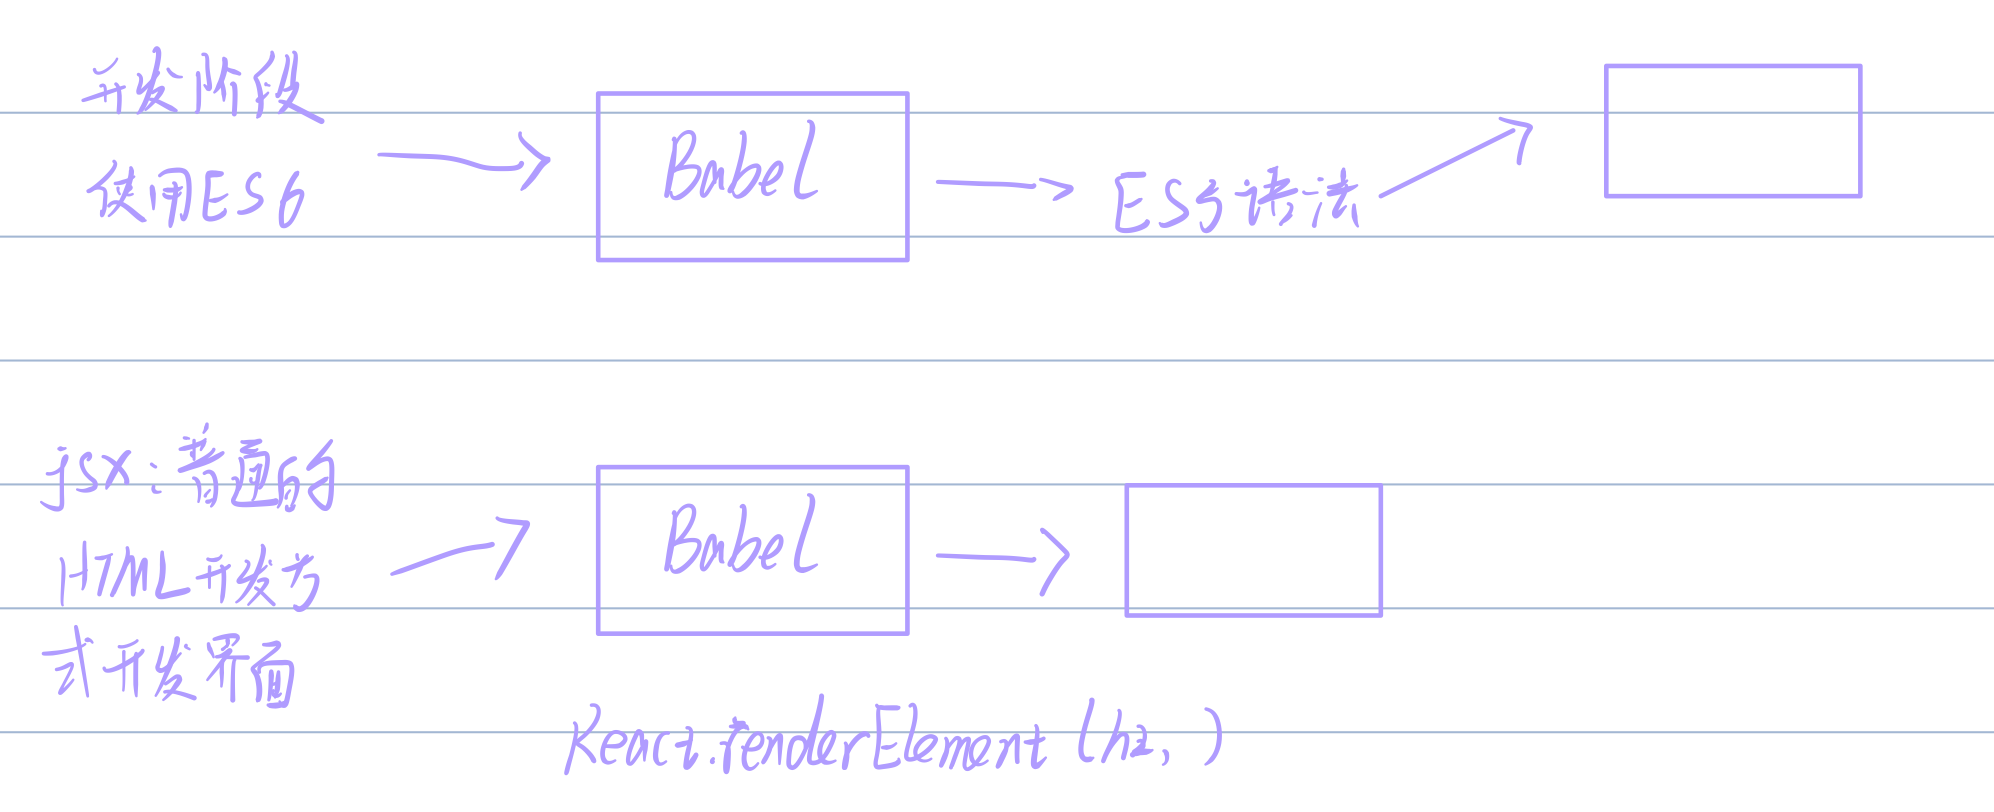 开发阶段
使用ES6
Babel
ES5语法
jsx:普通的
HTML开发方
式开发界面
Babel
React.renderElement(h2, )